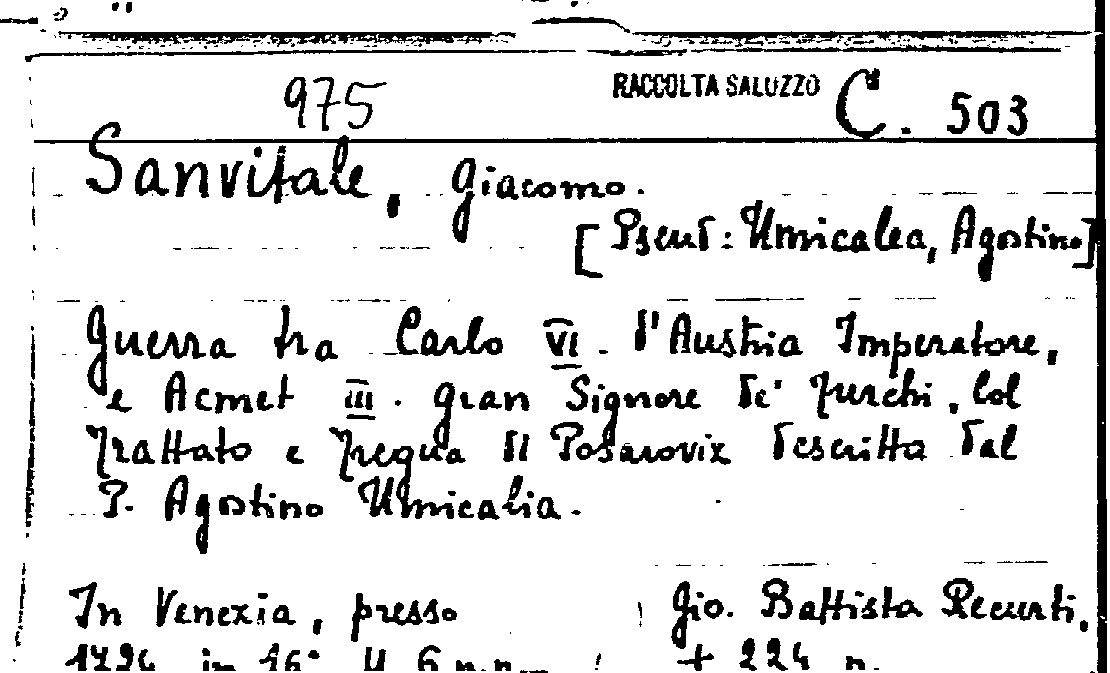 975 RACCOLTA SALUZZO C. 503
Sanvitale, Giacomo.
[Pseud: Umicalea, Agostino]
Guerra tra Carlo VI. d'Austria Imperatore,
e Acmet III. Gran Signore de' Turchi, Col
Trattato e Tregua di Posarovix descritta dal
P. Agostino Umicalia.
In Venezia, presso Gio. Battista Recurti,
in 16° + 224 p.